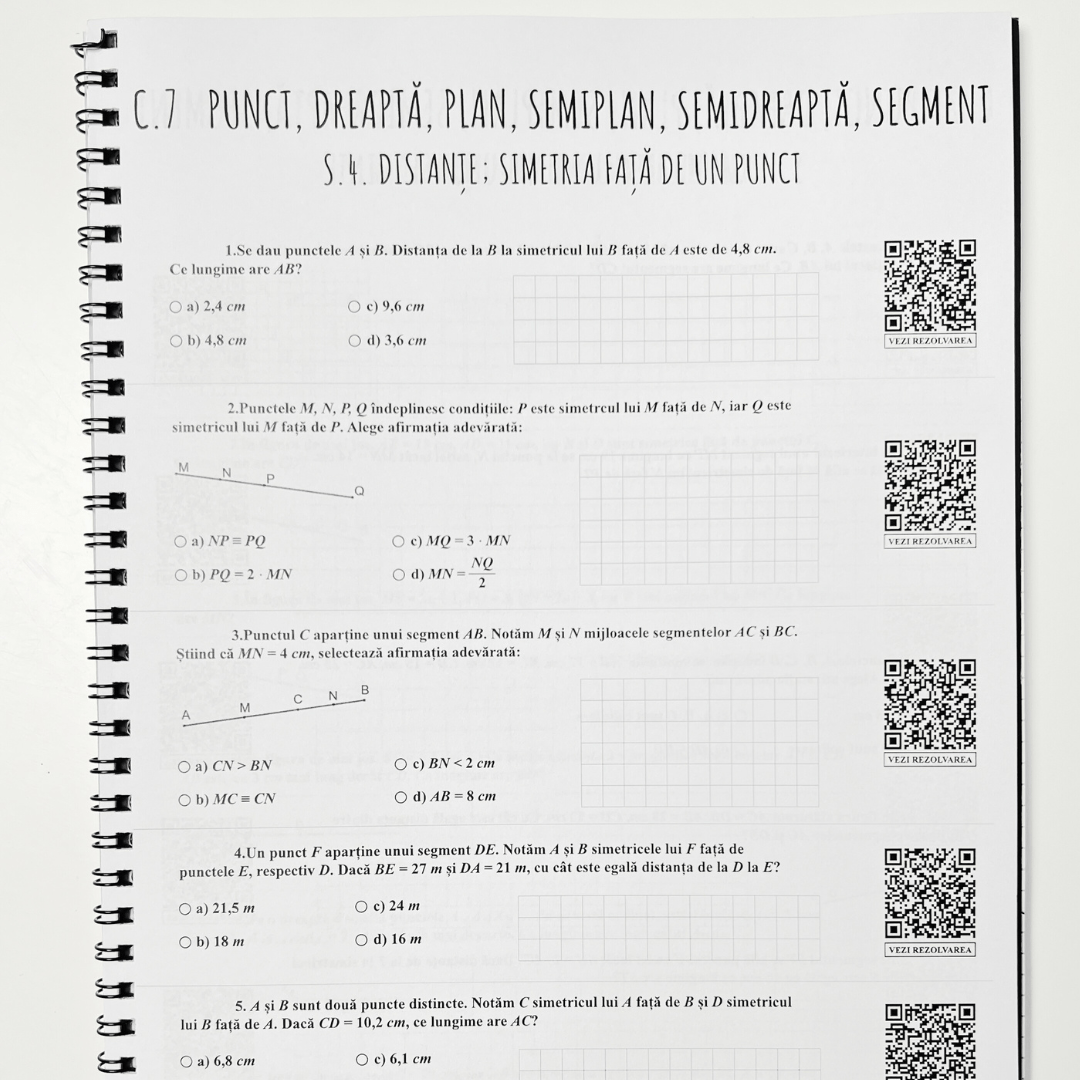 C.7 PUNCT, DREAPTĂ, PLAN, SEMIPLAN, SEMIDREAPTĂ, SEGMENT
S.4. DISTANȚE; SIMETRIA FAȚĂ DE UN PUNCT
1.Se dau punctele A și B. Distanța de la B la simetricul lui B față de A este de 4,8 cm.
Ce lungime are AB?
a) 2,4 cm
c) 9,6 cm
b) 4,8 cm
d) 3,6 cm
VEZI REZOLVAREA
2.Punctele M, N, P, Q îndeplinesc condițiile: P este simetrcul lui M față de N, iar Q este
simetricul lui M față de P. Alege afirmația adevărată:
M N P Q
a) NP ≡ PQ
c) MQ = 3 · MN
b) PQ = 2 · MN
d) MN = NQ/2
VEZI REZOLVAREA
3.Punctul C aparține unui segment AB. Notăm M și N mijloacele segmentelor AC și BC.
Știind că MN = 4 cm, selectează afirmația adevărată:
A M C N B
a) CN > BN
c) BN < 2 cm
b) MC ≡ CN
d) AB = 8 cm
VEZI REZOLVAREA
4.Un punct F aparține unui segment DE. Notăm A și B simetricele lui F față de
punctele E, respectiv D. Dacă BE = 27 m și DA = 21 m, cu cât este egală distanța de la D la E?
a) 21,5 m
c) 24 m
b) 18 m
d) 16 m
VEZI REZOLVAREA
5. A și B sunt două puncte distincte. Notăm C simetricul lui A față de B și D simetricul
lui B față de A. Dacă CD = 10,2 cm, ce lungime are AC?
a) 6,8 cm
c) 6,1 cm